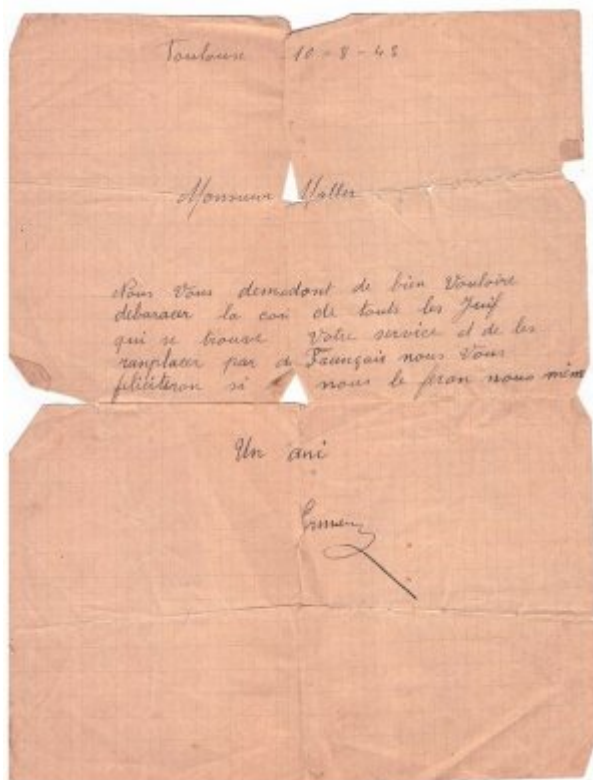 Toulouse 10-8-43
Monsieur Haller
Nous Vous demadont de bien Vouloire
débaracer la coin de touts les Juif
qui se trouve Votre service et de les
ranplacer par de Français nous Vous
féliciteron si nous le feron nous mem
Un ami